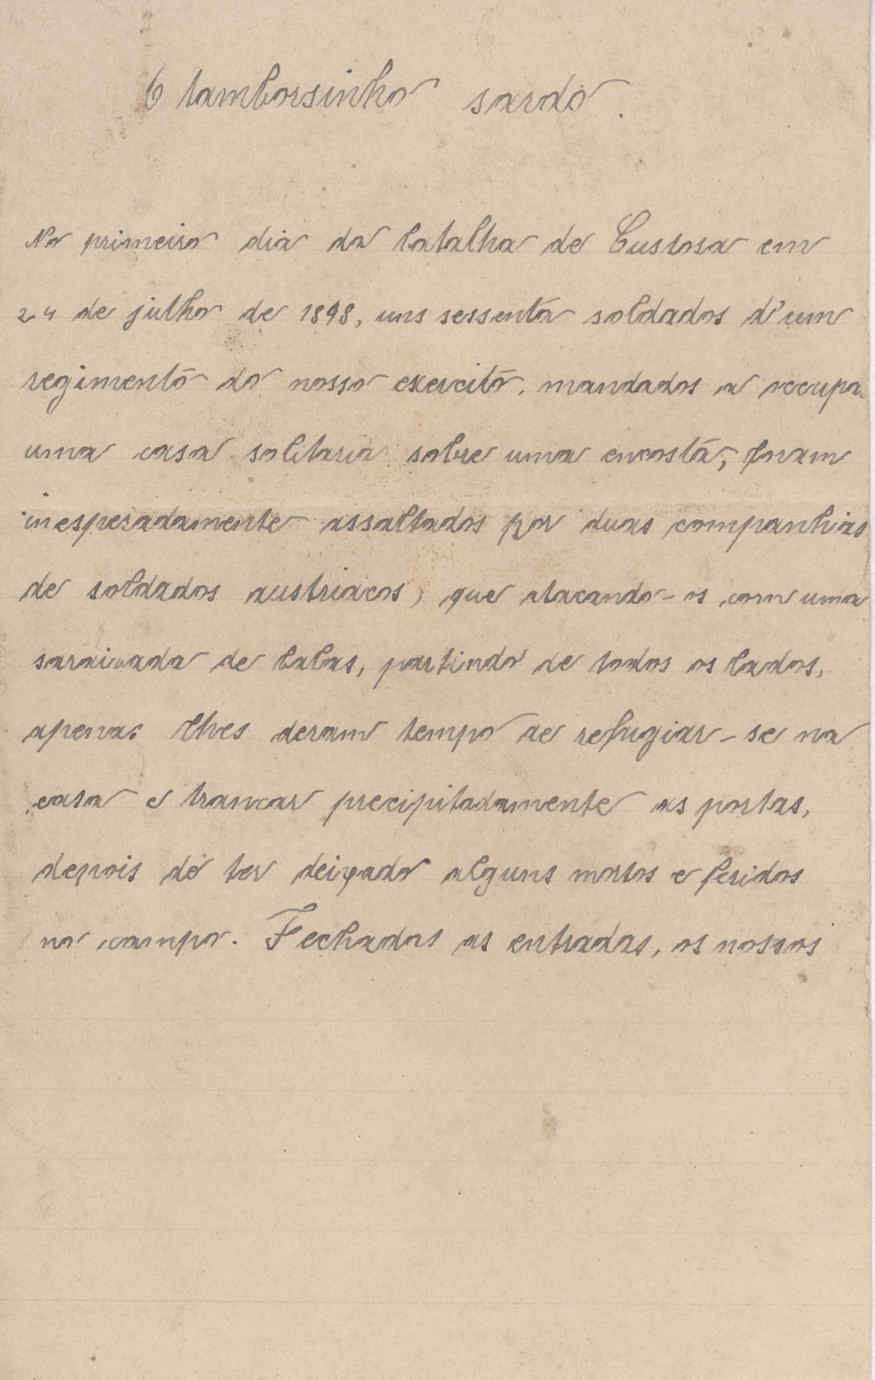 O tamborsinho sardo.
No primeiro dia da batalha de Custosa em
24 de julho de 1898, uns sessenta soldados d'um
regimento do nosso exercito, mandados a occupa
uma casa solitaria sobre uma encosta, foram
inesperadamente assaltados por duas companhias
de soldados austriacos, que atacando-os com uma
saraivada de balas, partindo de todos os lados,
apenas lhes deram tempo de refugiar-se na
casa e trancar precipitadamente as portas,
depois de ter deixado alguns mortos e feridos
no campo. Fechadas as entradas, os nossos